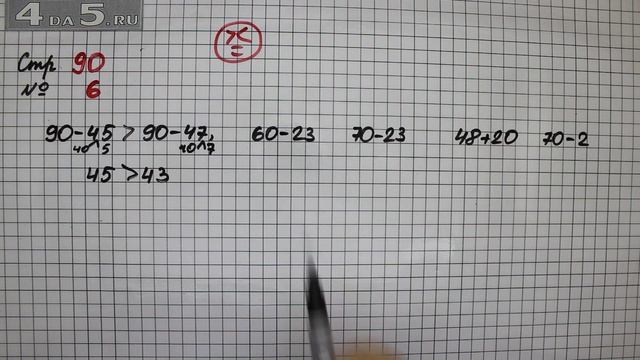 4DA5.RU
><
=
Стр 90
№ 6
90-45 > 90-47, 60-23 70-23 48+20 70-2
40^5 40^7
45 > 43